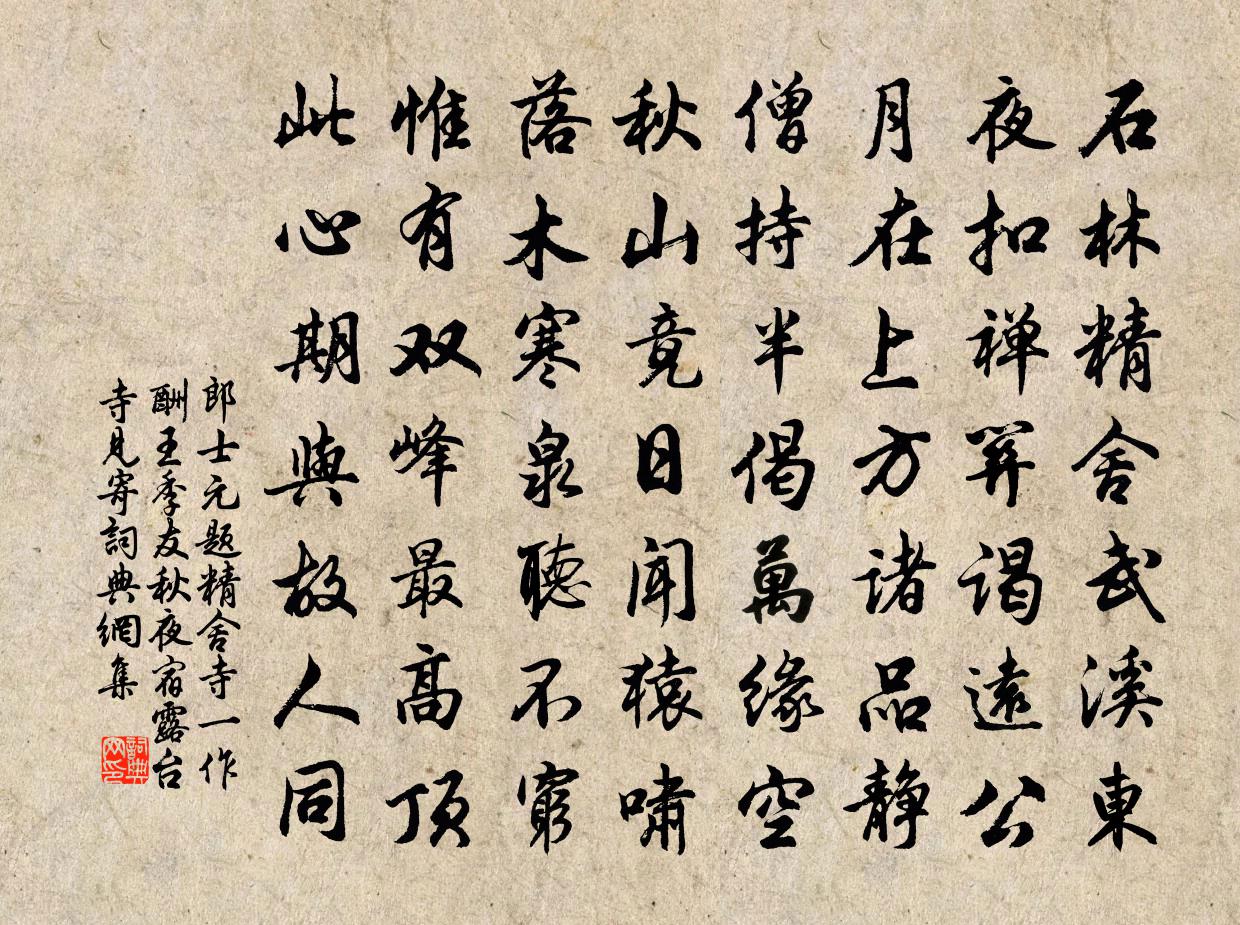 石林精舍武溪東
夜扣禅關謁遠公
月在上方諸品静
僧持半偈萬緣空
秋山竟日聞猿嘯
落木寒泉聽不窮
惟有双峰最高頂
此心期與故人同
郎士元题精舍寺一作
酬王季友秋夜宿露台
寺見寄詞典網集
詞典网印